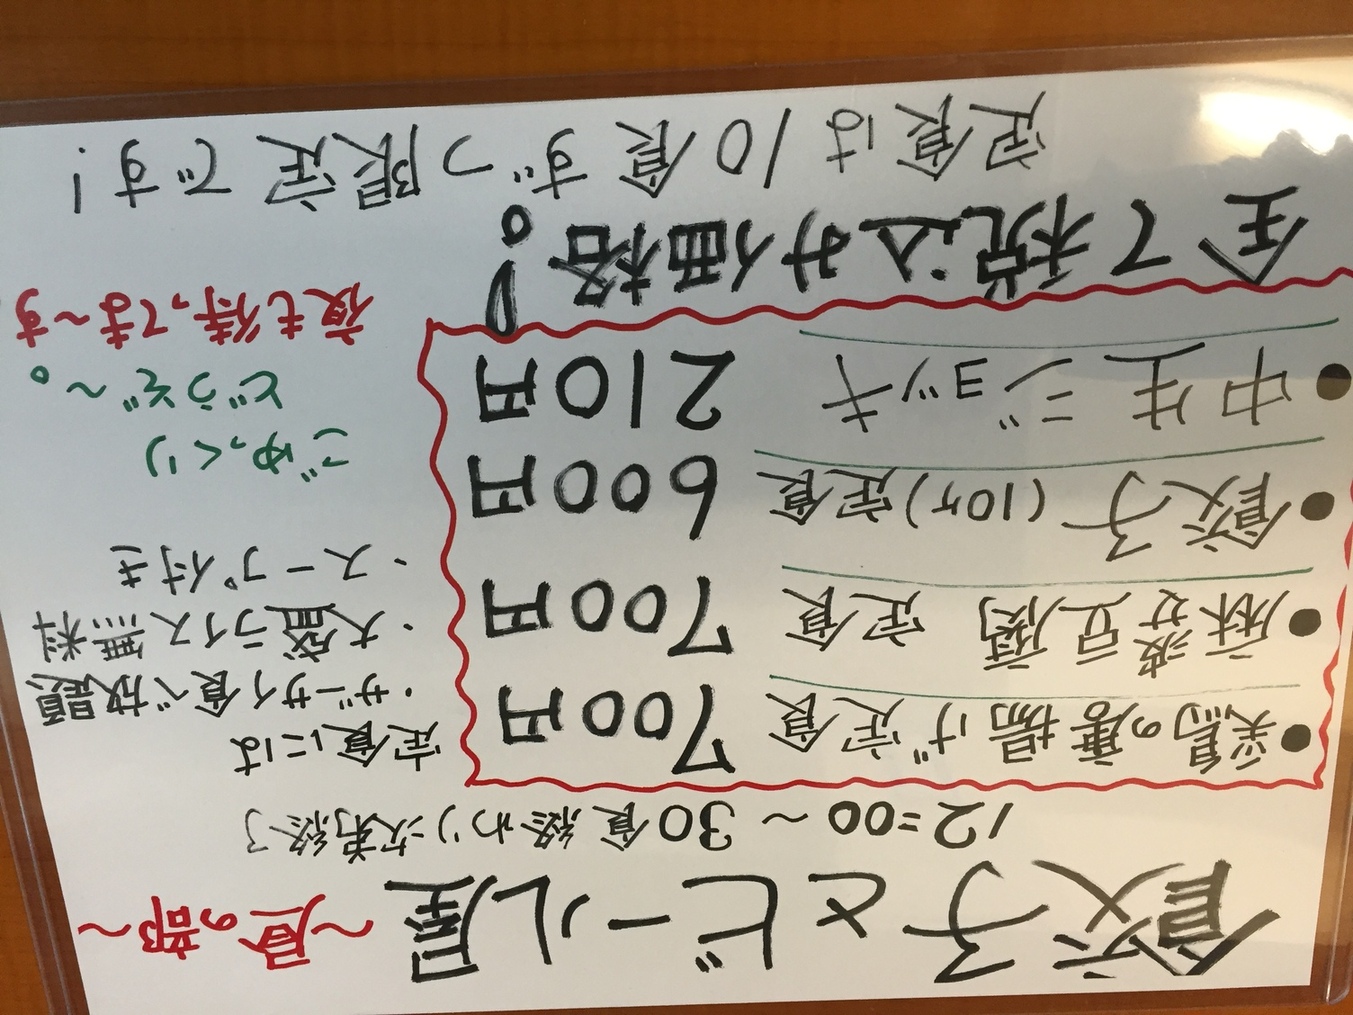 餃子とビール屋 ～昼の部～
12:00～30食終わり次第終了
●鶏の唐揚げ定食 700円
●麻婆豆腐 定食 700円
●餃子(10ヶ)定食 600円
●中生ジョッキ 210円
定食には
・ザーサイ食べ放題
・大盛ライス無料
・スープ付き
ごゆっくり
どうぞ～。
夜も待ってま～す
全て税込み価格!
定食は10食ずつ限定です!